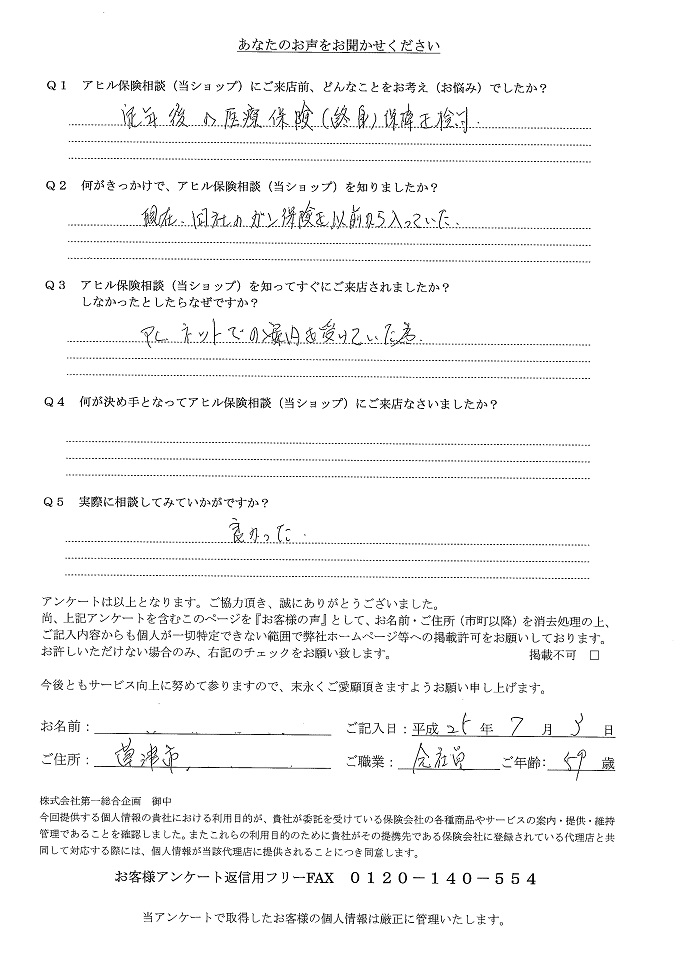 あなたのお声をお聞かせください
Q1 アヒル保険相談(当ショップ)にご来店前、どんなことをお考え(お悩み)でしたか?
定年後の医療保険(終身)保障を検討.
Q2 何がきっかけで、アヒル保険相談(当ショップ)を知りましたか?
現在、同社のガン保険を以前から入っていた.
Q3 アヒル保険相談(当ショップ)を知ってすぐにご来店されましたか?
しなかったとしたらなぜですか?
PC ネットでの案内を受けていた為.
Q4 何が決め手となってアヒル保険相談(当ショップ)にご来店なさいましたか?
Q5 実際に相談してみていかがですか?
良かった.
アンケートは以上となります。ご協力頂き、誠にありがとうございました。
尚、上記アンケートを含むこのページを『お客様の声』として、お名前・ご住所(市町以降)を消去処理の上、
ご記入内容からも個人が一切特定できない範囲で弊社ホームページ等への掲載許可をお願いしております。
お許しいただけない場合のみ、右記のチェックをお願い致します。 掲載不可 □
今後ともサービス向上に努めて参りますので、末永くご愛顧頂きますようお願い申し上げます。
お名前: ご記入日:平成 25 年 7 月 3 日
ご住所: 草津市 ご職業: 会社員 ご年齢: 59 歳
株式会社第一総合企画 御中
今回提供する個人情報の貴社における利用目的が、貴社が委託を受けている保険会社の各種商品やサービスの案内・提供・維持
管理であることを確認しました。またこれらの利用目的のために貴社がその提携先である保険会社に登録されている代理店と共
同して対応する際には、個人情報が当該代理店に提供されることにつき同意します。
お客様アンケート返信用フリーFAX 0120-140-554
当アンケートで取得したお客様の個人情報は厳正に管理いたします。